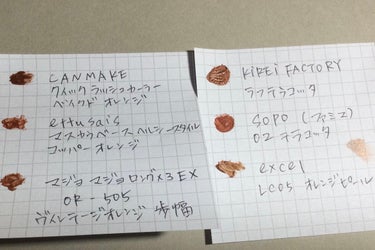 CANMAKE
クイックラッシュカーラー
ベイクドオレンジ
ettusais
マスカラベース ヘルシースタイル
コッパーオレンジ
マジョマジョ ロング×3 EX
OR-505
ヴィンテージオレンジ 歩幅
KiREi FACTORY
ラフテラコッタ
SOPO (ファミマ)
02 テラコッタ
excel
LC05 オレンジピール